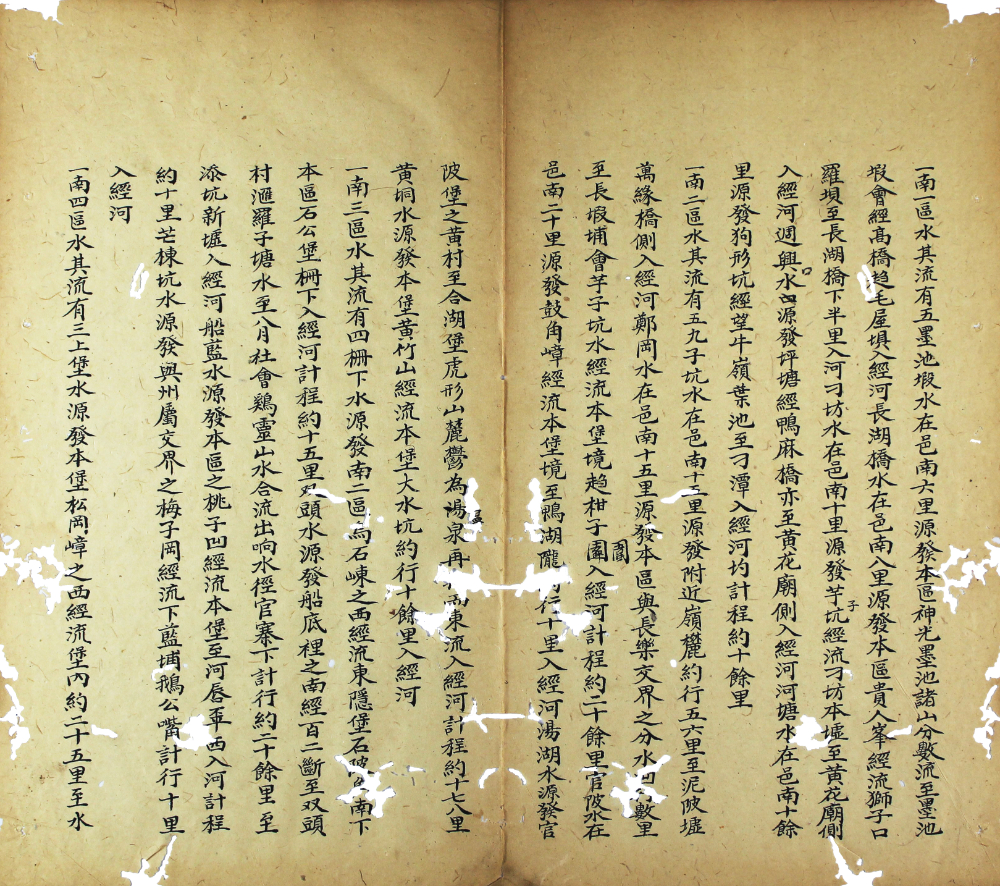 一南一區水其流有五墨池塅水在邑南六里源發本區神光墨池諸山分數流至墨池
塅會經高橋趋毛屋垻入經河長湖橋水在邑南八里源發本區貴人峯經流獅子口
羅垻至長湖橋下半里入河刁坊水在邑南十里源發芋子坑經流刁坊本墟至黃花廟側
入經河週興水口源發坪塘經鴨麻橋亦至黃花廟側入經河河塘水在邑南十餘
里源發狗形坑經望牛嶺葉池至刁潭入經河均計程約十餘里
一南二區水其流有五九子坑水在邑南十五里源發附近嶺欎約行五六里至泥陂墟
萬緣橋側入經河鄭岡水在邑南十五里源發本區與長樂交界之分水凹 數里
至長塅埔會芋子坑水經流本堡境趋柑子園入經河計程約二十餘里官陂水在
邑南二十里源發鼓角嶂經流本堡境至鴨湖隴 行十里入經河湯湖水源發官
陂堡之黃村至合湖堡虎形山麓鬱為湯泉再 東流入經河計程約十七八里
黃垌水源發本堡黃竹山經流本堡大水坑約行十餘里入經河
一南三區水其流有四柵下水源發南二區 石崠之西經流東隱堡石陂 南下
本區石公堡柵下入經河計程約十五里双頭水源發船底裡之南經百二斷至双頭
村滙羅子塘水至八月社會鷄靈山水合流出响水徑官寨下計行約二十餘里至
添坑新墟入經河船藍水源發本區之桃子凹經流本堡至河唇 西入河計程
約十里芒棟坑水源發興州屬交界之梅子岡經流下藍埔鵝公嘴計行十里
入經河
一南四區水其流有三上堡水源發本堡松岡嶂之西經流堡內約二十五里至水